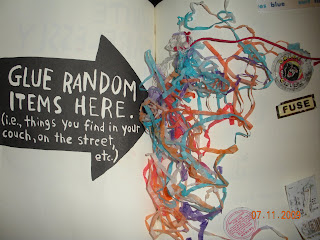 GLUE RANDOM
ITEMS HERE.
(i.e., things you find in your
couch, on the street,
etc.)
blue
FUSE